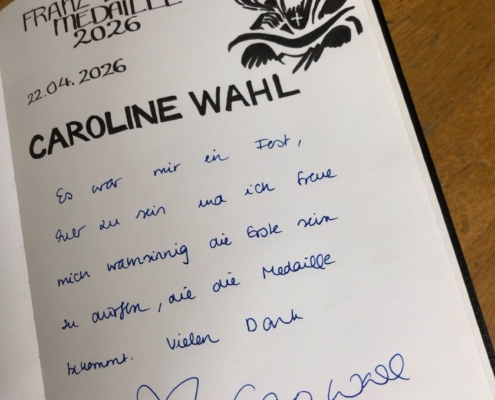 FRANZ
MEDAILLE
2026
22.04.2026
CAROLINE WAHL
Es war mir ein Fest,
hier zu sein und ich freue
mich wahnsinnig die Erste sein
zu dürfen, die die Medaille
bekommt. Vielen Dank
Caro Wahl